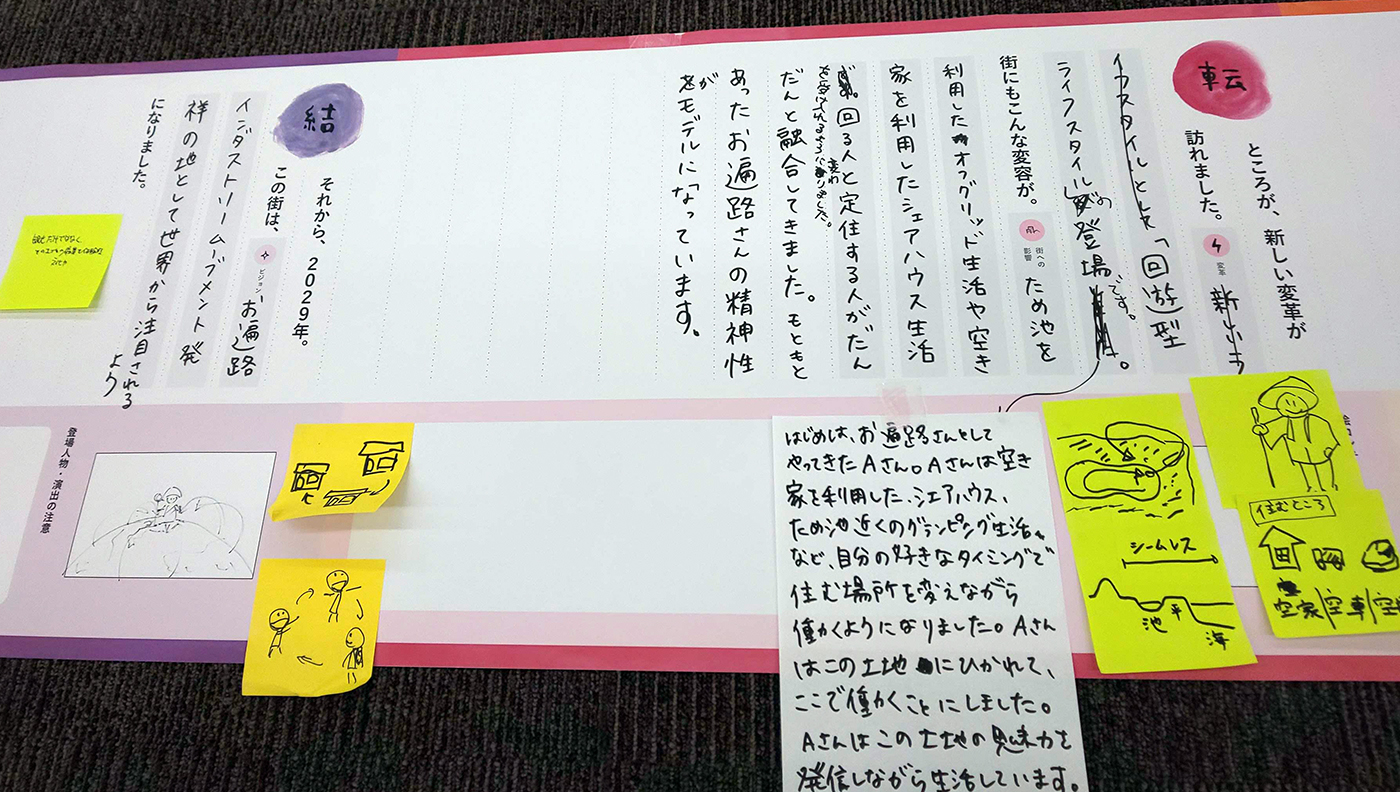 転
ところが、新しい変革が
訪れました。
変革
ライフスタイルの登場です。
「回遊型
街にもこんな変容が。
街への
影響
ため池を
利用したオフグリッド生活や空き
家を利用したシェアハウス生活
回る人と定住する人がだん
だんと融合してきました。もともと
あったお遍路さんの精神性
が
モデルになっています。
結
それから、2029年。
この街は、
ビジョン
お遍路
インダストリームーブメント発
祥の地として世界から注目される
よう
になりました。
住むところ
空家/空車/空
シームレス
池
平
海
はじめは、お遍路さんとして
やってきたAさん。Aさんは空き
家を利用した、シェアハウス、
ため池近くのグランピング生活
など、自分の好きなタイミングで
住む場所を変えながら
働くようになりました。Aさん
はこの土地にひかれて、
ここで働くことにしました。
Aさんはこの土地の魅力を
発信しながら生活しています。
登場人物・演出の注意